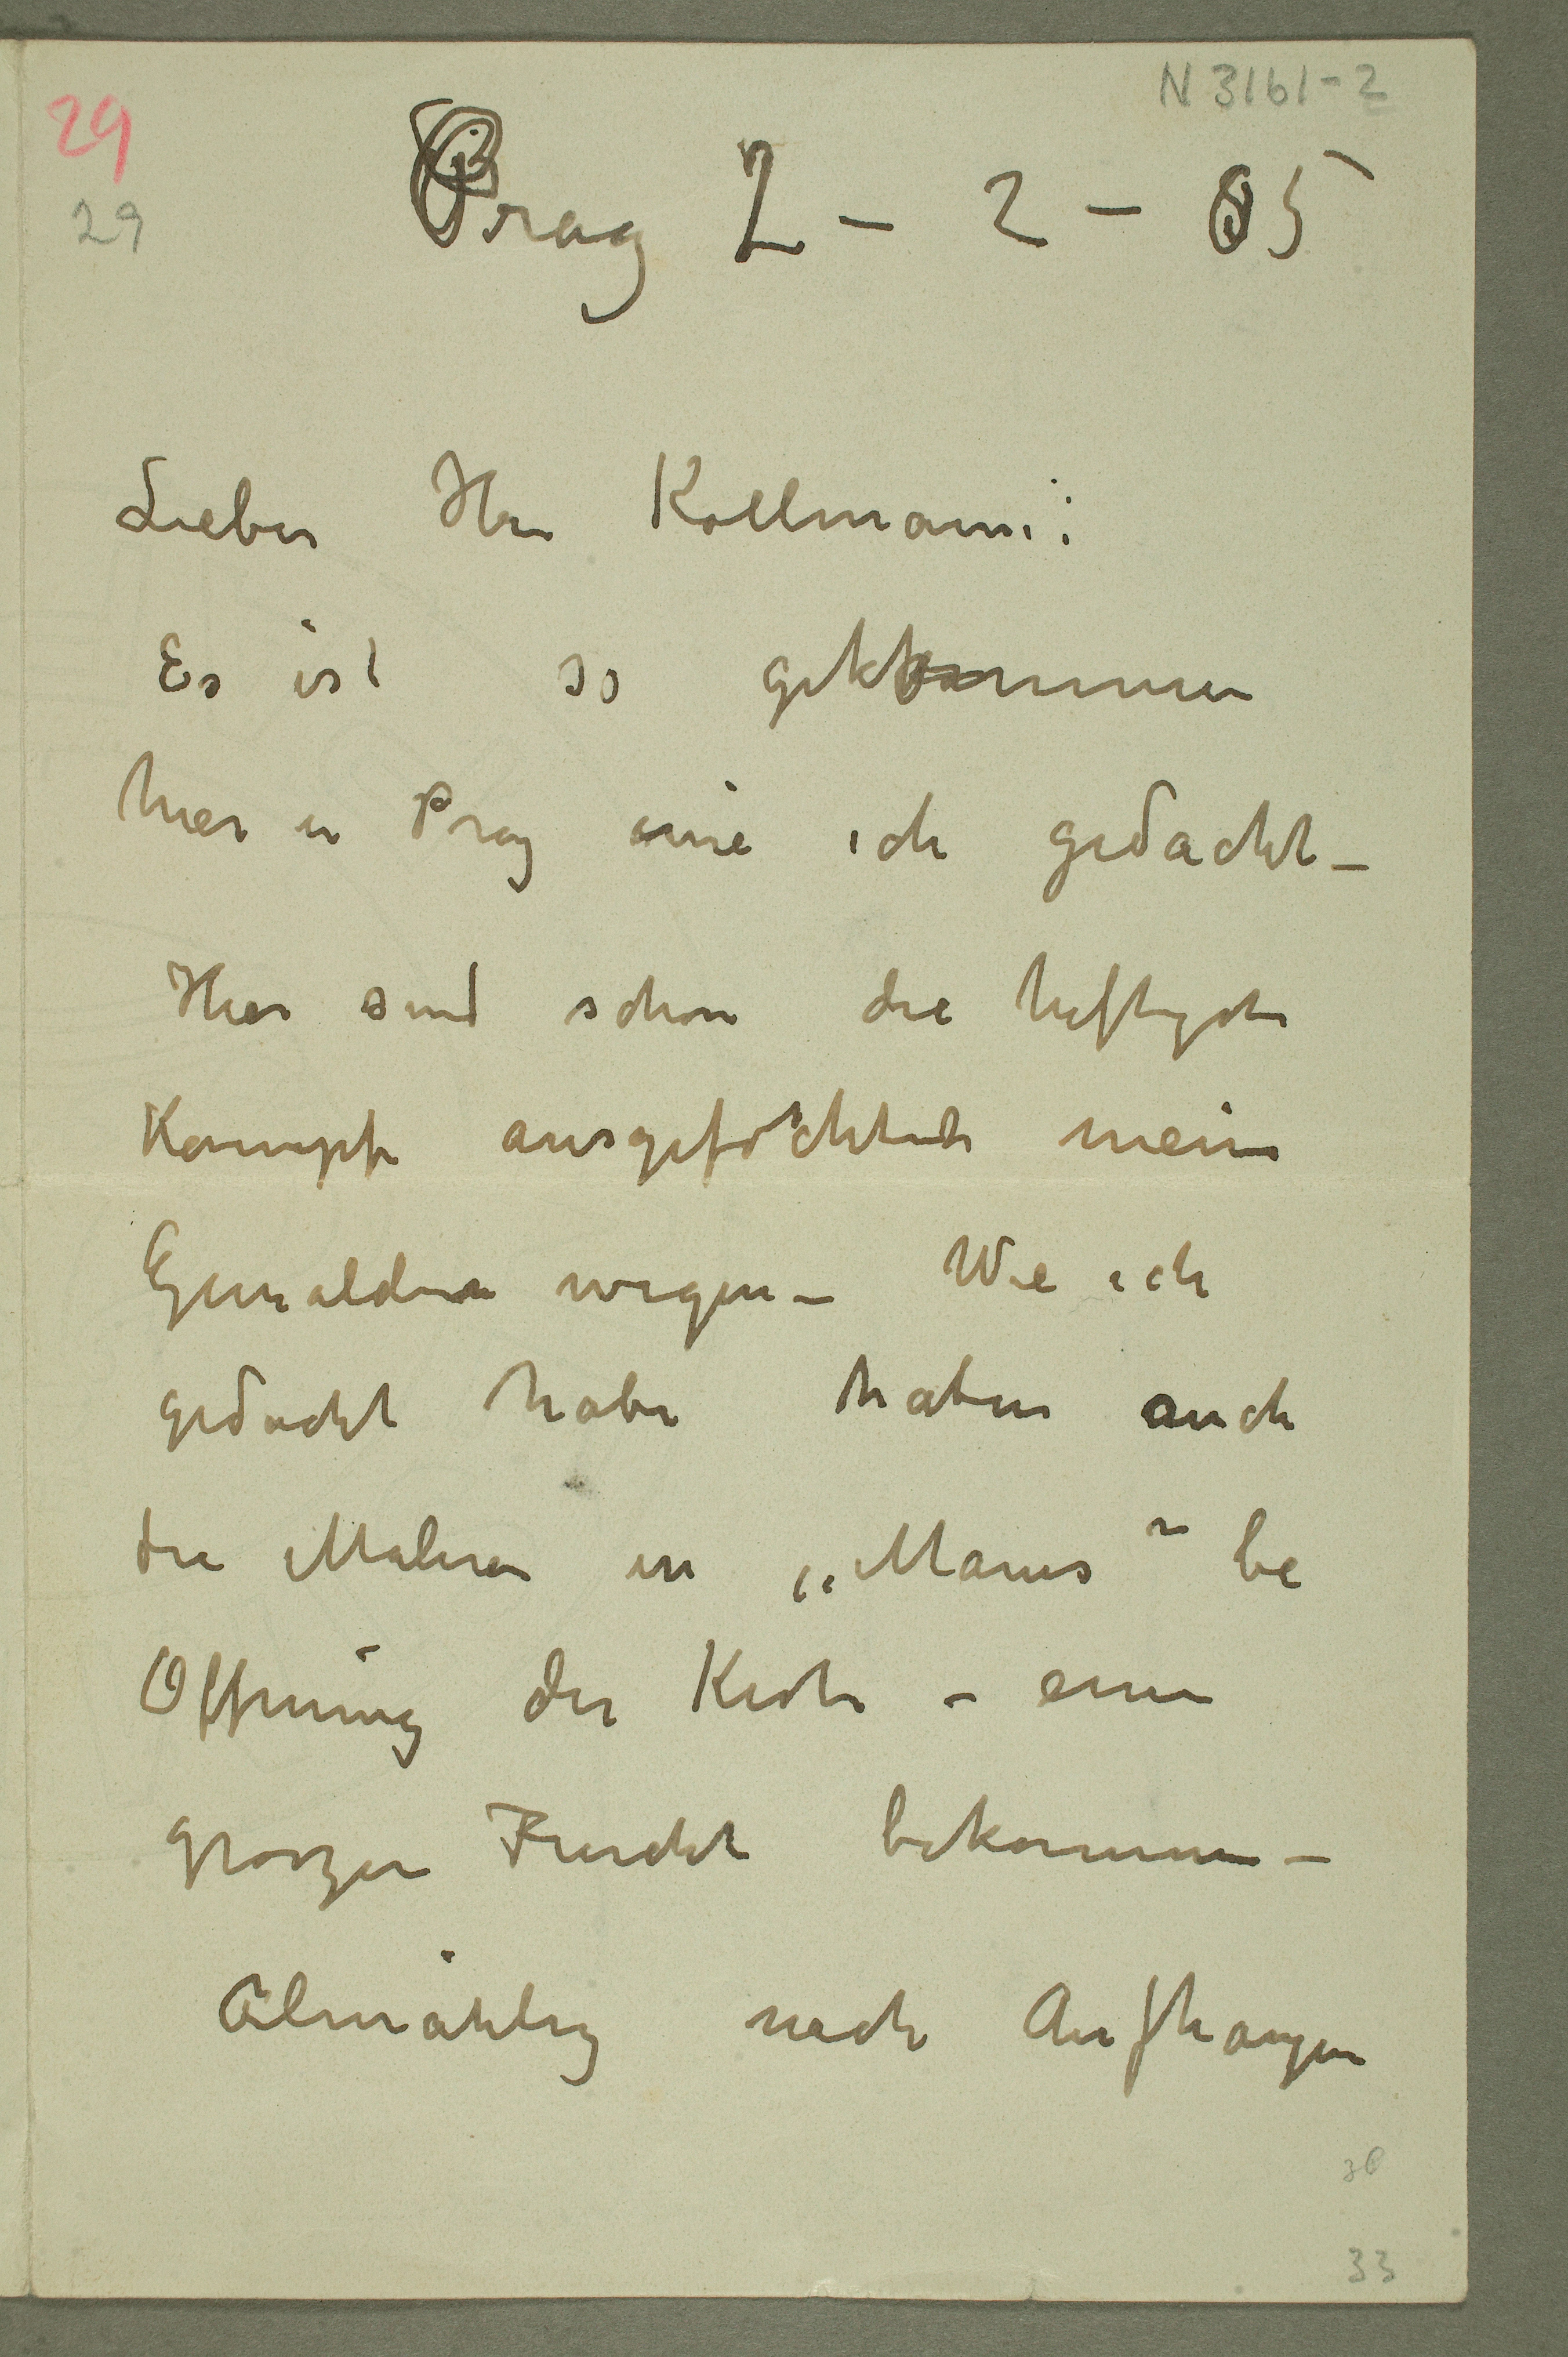 N 3161-2
29
29
Prag 2 – 2 – 05
Lieber Herr Kollmann:
Es ist so gekommen
hier in Prag wie ich gedacht –
Hier sind schon die heftigsten
Kampfe ausgefochten meine
Gemälden wegen – Wie ich
gedacht habe haben auch
die Malern in „Manes" be
Offnung der Kiste – einen
groszen Furcht bekommen –
Almählig nach Aufhangen
33